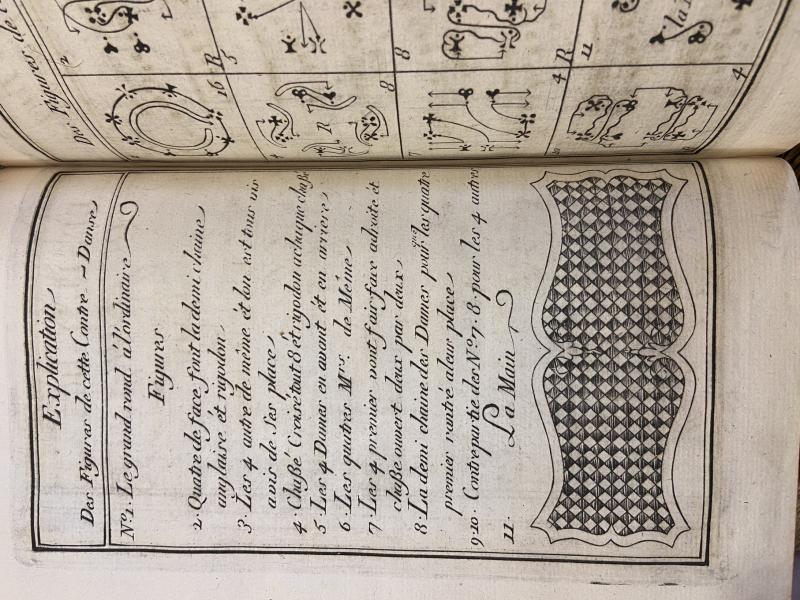 Explication
Des Figures de cette Contre-Danse
No. 1. Le grand rond a l'ordinaire
Figures
2. Quatre de face font la demi chaine
anglaise et rigodon
3. Les 4 autre de même et l'on est tous vis
avis de ses place
4. Chaßé Croisé tout 8 et rigodon a chaque chaßé
5. Les 4 Dames en avant et en arriere
6. Les quatres Mrs. de Même
7. Les 4 premier vont fair face adroite et
chaße ouvert deux par deux
8. La demi chaine des Dames pour les quatre
premier rentré a leur place
9.10. Contrepartie des No. 7. 8. pour les 4 autres
11. La Main
Des Figures de
2
R
5
8
R
11
la
1
16
4
R
8
7
4
10
4